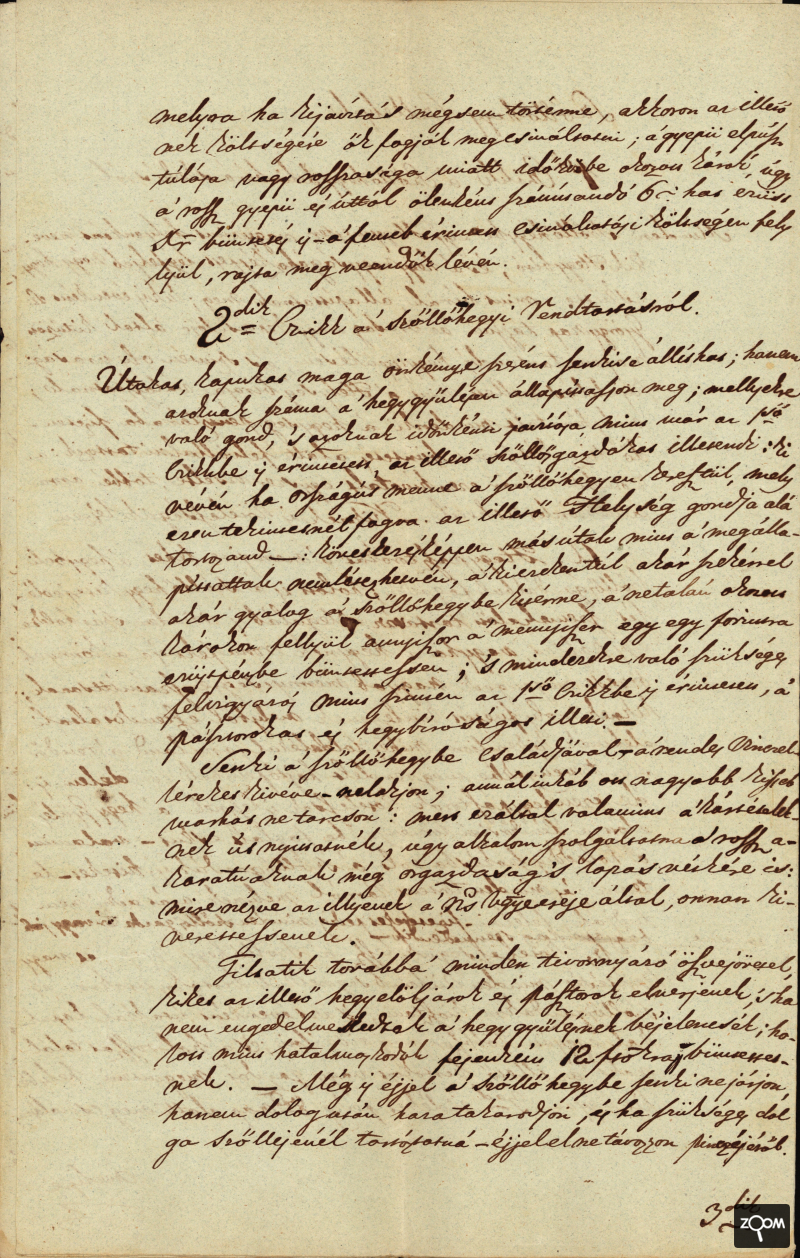 melyre ha kijavitás mégsem történne, akkoron az illető
nek költségére ők fogják megcsináltatni; a' gyepü elpusz
túlása vagy rosszasága miatt időközbe okozott károk, úgy
a' rosz gyepü és úttól ölenként számítandó 6 = hat ezüst
Xr büntetés is – a' fentebb érintett csináltatási költségen fely
lyül, rajta meg veendők lévén.
2dik = Czikk a' szőllőhegyi Rendtartásról.
Útakat, kapukat maga önkénye szerént senkise állíthat; hanem
azoknak száma a' hegygyülésen állapíttasson meg; mellyekre
való gond, 's azoknak időnkénti javítása mint már az 1ső
Czikkbe is érintetett, az illető szőllősgazdákat illetendi: ki
vévén ha országút menne a' szőllőhegyen keresztül, mely
ezen tekintetnél fogva az illető Helység gondja alá
tartozand –: következésképpen más útak mint a' megálla-
píttattak nem létezhetvén, a' ki ezeken túl akár szekérrel
akár gyalog a' szőllőhegybe kimenne, a' netalán okozott
károkon fellyül annyiszor a' mennyiszer egy egy forintra
ezüstpénzbe büntettessen; 's mindezekre való szükséges
felvigyázás mint szintén az 1ső Czikkbe is érintetett, a'
pásztorokat és hegybíróságot illeti. –
Senki a' szőllőhegybe családjával – a' rendes Vinczel-
léreket kivéve – ne lakjon; annál inkább ott nagyobb kissebb
marhát ne tartson: mert ezáltal valamint a' kártételek-
nek út nyittatnék, úgy alkalom szolgáltatna a' rossz a-
karatuaknak még orgazdaság 's lopás vétkére is:
mire nézve az illyenek a' Ns Vgye ereje által, onnan ki-
vettessenek.
Tilsatik továbbá minden tivornyázó öszvejövetel,
kiket az illető hegyelöljárók és pásztorok elverjenek, 's ha
nem engedelmeskednek a' hegygyülésnek béjelentsék; ho-
lott mint hatalmaskodók fejenként 12 frtokraj büntettes-
nek. – Még is éjjel a' szőllőhegybe senki ne járjon,
hanem dolog után haza takarodjon, és ha szükséges dol
ga szőllejénél tartóztatná – éjjel el ne távozzon pinczéjétől.
3dik
ZOOM